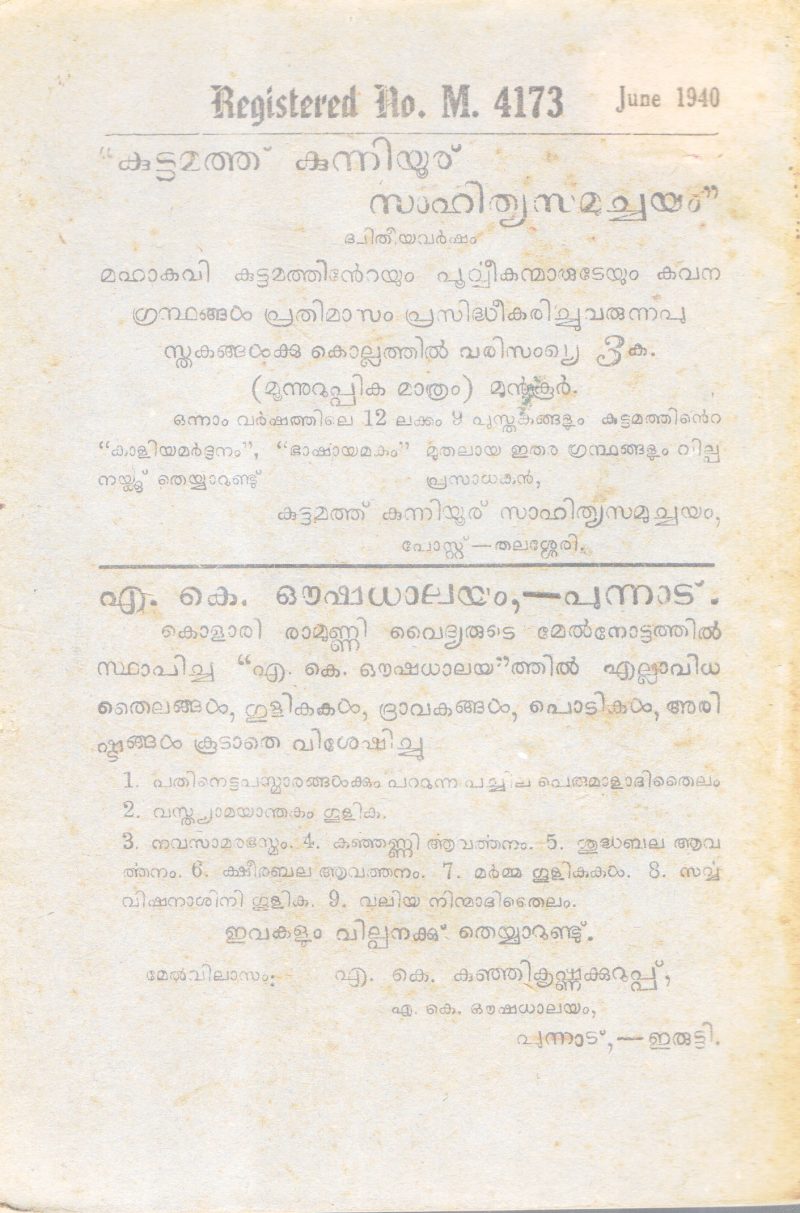 Registered No. M. 4173 June 1940
“കുട്ടമത്ത് കുന്നിയൂര്
സാഹിത്യസമുച്ചയം”
ദ്വിതീയവർഷം
മഹാകവി കുട്ടമത്തിൻേറയും പൂൎവ്വീകന്മാരുടേയും കവന
ഗ്രന്ഥങ്ങൾ പ്രതിമാസം പ്രസിദ്ധീകരിച്ചുവരുന്നപു
സ്തകങ്ങൾക്കു കൊല്ലത്തിൽ വരിസംഖ്യ 3ക.
(മൂന്നുറുപ്പിക മാത്രം) മുൻകൂർ.
ഒന്നാം വർഷത്തിലെ 12 ലക്കം 9 പുസ്തകങ്ങളും കുട്ടമത്തിൻെറ
“കാളിയമർദ്ദനം”, “ഭാഷായമകം” മുതലായ ഇതര ഗ്രന്ഥങ്ങളും വില്പ
നയ്ക്കു തെയ്യാറുണ്ടു് പ്രസാധകൻ,
കുട്ടമത്ത് കുന്നിയൂര് സാഹിത്യസമുച്ചയം,
പോസ്റ്റ്—തലശ്ശേരി.
എ. കെ. ഔഷധാലയം,—പുന്നാട്.
കൊളാരി രാമുണ്ണി വൈദ്യരുടെ മേൽനോട്ടത്തിൽ
സ്ഥാപിച്ച “എ. കെ. ഔഷധാലയ”ത്തിൽ എല്ലാവിധ
തൈലങ്ങൾ, ഗുളികകൾ, ദ്രാവകങ്ങൾ, പൊടികൾ, അരി
ഷ്ടങ്ങൾ കൂടാതെ വിശേഷിച്ചു
1. പതിനെട്ടപസ്മാരങ്ങൾക്കും പററുന്ന പച്ചില പെരുമാളാദിതൈലം
2. വസ്ത്യാമയാന്തകം ഗുളിക.
3. നവസാമരഭസ്മം. 4. കഞ്ഞണ്ണി ആവൎത്തനം. 5. ശുദ്ധബല ആവ
ൎത്തനം. 6. ക്ഷീരബല ആവൎത്തനം. 7. മർമ്മ ഗുളികകൾ. 8. സൎവ്വ
വിഷനാശിനി ഗുളിക. 9. വലിയ നിന്മാദിതൈലം.
ഇവകളും വില്പനക്കു് തെയ്യാറുണ്ടു്.
മേൽവിലാസം: എ. കെ. കുഞ്ഞികൃഷ്ണക്കുറുപ്പ്,
എ. കെ. ഔഷധാലയം,
പുന്നാട്,—ഇരുട്ടി.